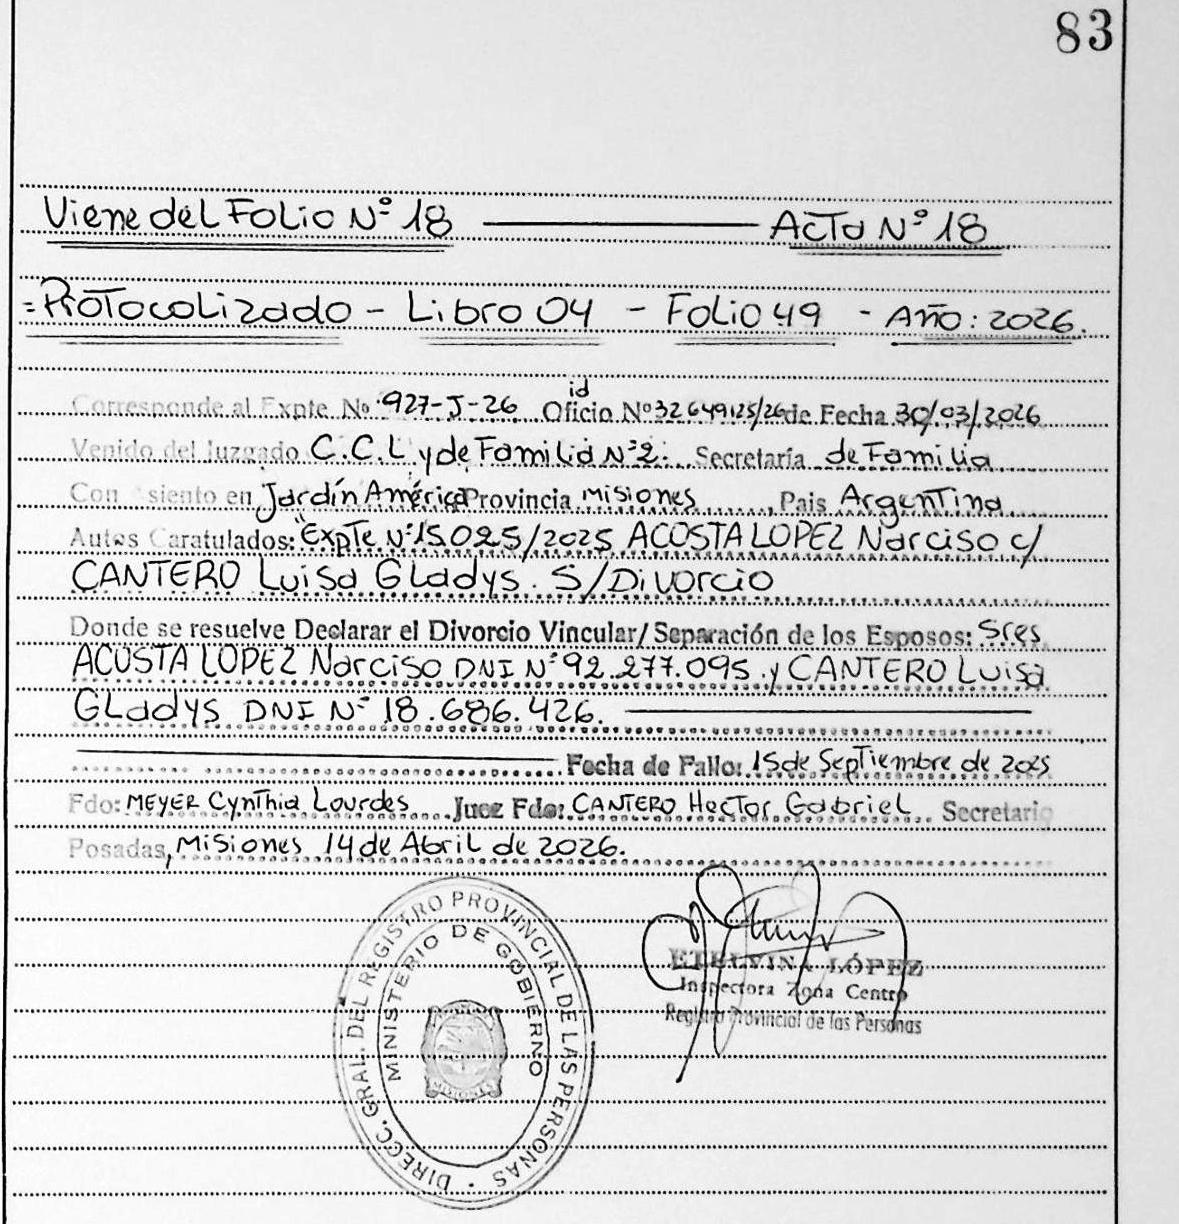 83
Viene del Folio Nº 18 Acta Nº 18
=Protocolizado - Libro 04 - Folio 49 - Año: 2026.
id
Corresponde al Expte. No 927-J-26 Oficio Nº 32649125/26 de Fecha 30/03/2026
Venido del Juzgado C.C.L y de Familia Nº2. Secretaría de Familia
Con siento en Jardín América Provincia Misiones, Pais Argentina
Autos Caratulados: "Expte Nº15.025/2025 ACOSTA LOPEZ Narciso c/
CANTERO Luisa Gladys. S/Divorcio
Donde se resuelve Declarar el Divorcio Vincular/Separación de los Esposos: Sres
ACOSTA LOPEZ Narciso DNI Nº 92.277.095 y CANTERO Luisa
Gladys DNI Nº 18.686.426.
Fecha de Fallo: 15 de Septiembre de 2025
Fdo: MEYER Cynthia Lourdes Juez Fdo: CANTERO Hector Gabriel Secretario
Posadas, Misiones 14 de Abril de 2026.
DIRECC. GRAL. DEL REGISTRO PROVINCIAL DE LAS PERSONAS
MINISTERIO DE GOBIERNO
MISIONES
ETELVINA LÓPEZ
Inspectora Zona Centro
Registro Provincial de las Personas